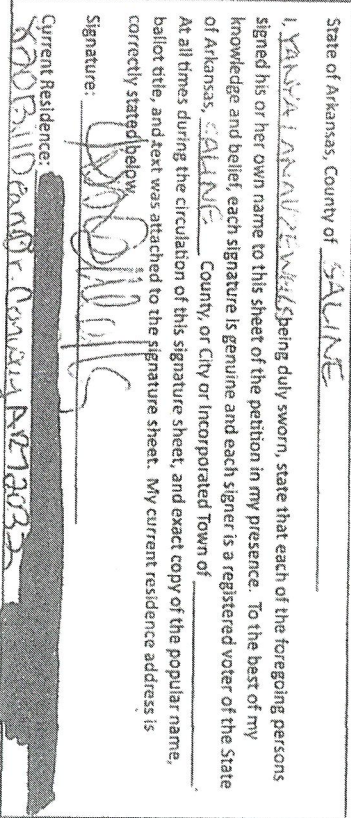 State of Arkansas, County of SALINE
I, being duly sworn, state that each of the foregoing persons
signed his or her own name to this sheet of the petition in my presence. To the best of my
knowledge and belief, each signature is genuine and each signer is a registered voter of the State
of Arkansas, SALINE County, or City or Incorporated Town of
At all times during the circulation of this signature sheet, and exact copy of the popular name,
ballot title, and text was attached to the signature sheet. My current residence address is
correctly stated below.
Signature:
Current Residence:
Conway AR 72032